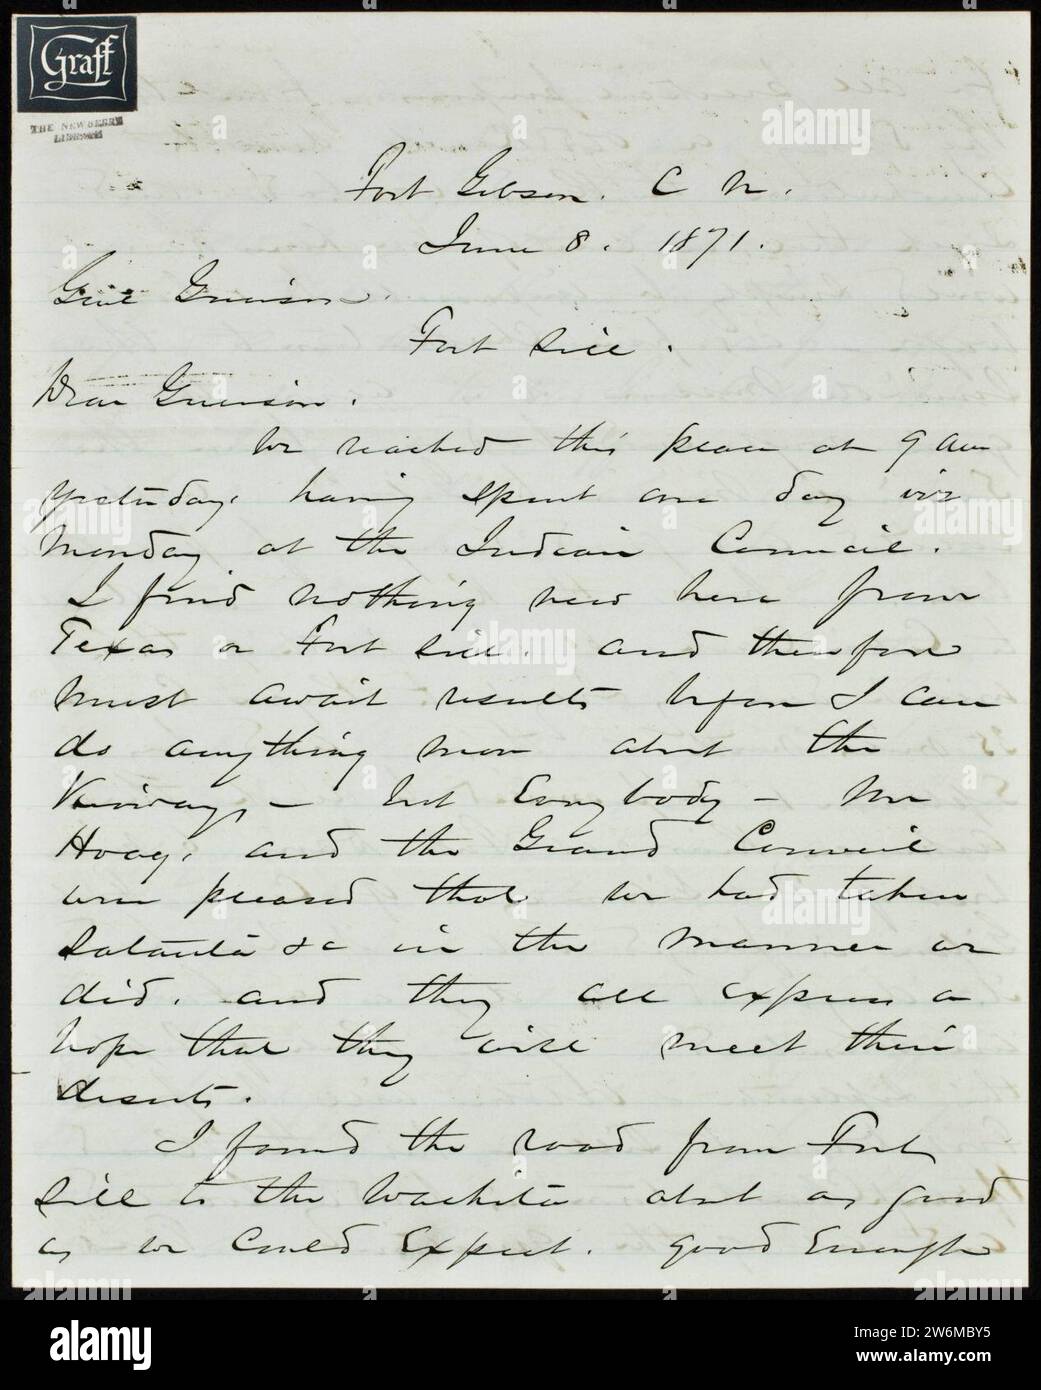 Graff
THE NEWBERRY
LIBRARY
Fort Gibson. C N.
June 8. 1871.
Genl Grierson.
Fort Sill.
Dear Grierson.
We reached this place at 9 am
yesterday. having spent one day viz
Monday at the Indian Council.
I find nothing new here from
Texas or Fort Sill. and therefore
must await results before I can
do anything more about the
Kioways - but Every body - Mr
Hoag. and the Grand Council
were pleased that we had taken
Satanta &c in the manner we
did. and they all express a
hope that they will meet their
deserts.
I found the road from Fort
Sill to the Wachita about as good
as we could Expect. good Enough
alamy
Image ID: 2W6MBY5
www.alamy.com